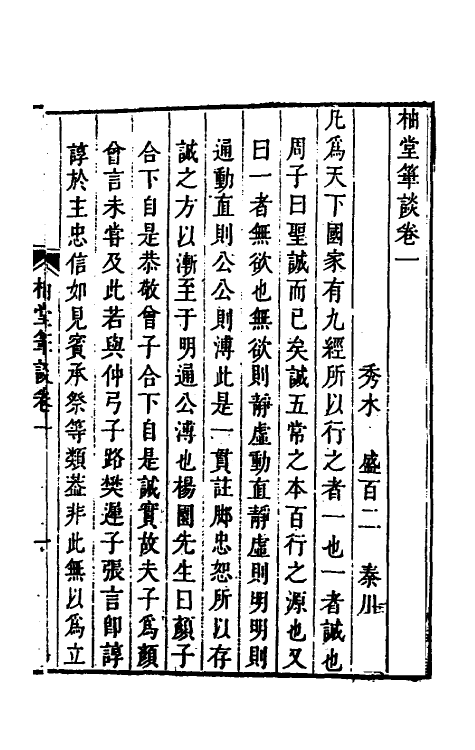 柚堂筆談卷一
秀水　盛百二　秦川
凡爲天下國家有九經所以行之者一也一者誠也
周子曰聖誠而已矣誠五常之本百行之源也又
曰一者無欲也無欲則靜虛動直靜虛則明明則
通動直則公公則溥此是一貫註脚忠恕所以存
誠之方以漸至于明通公溥也楊園先生曰顏子
合下自是恭敬曾子合下自是誠實故夫子爲顏
曾言未嘗及此若與仲弓子路樊遲子張言卽諄
諄於主忠信如見賓承祭等類葢非此無以爲立
柚堂筆談卷一
一